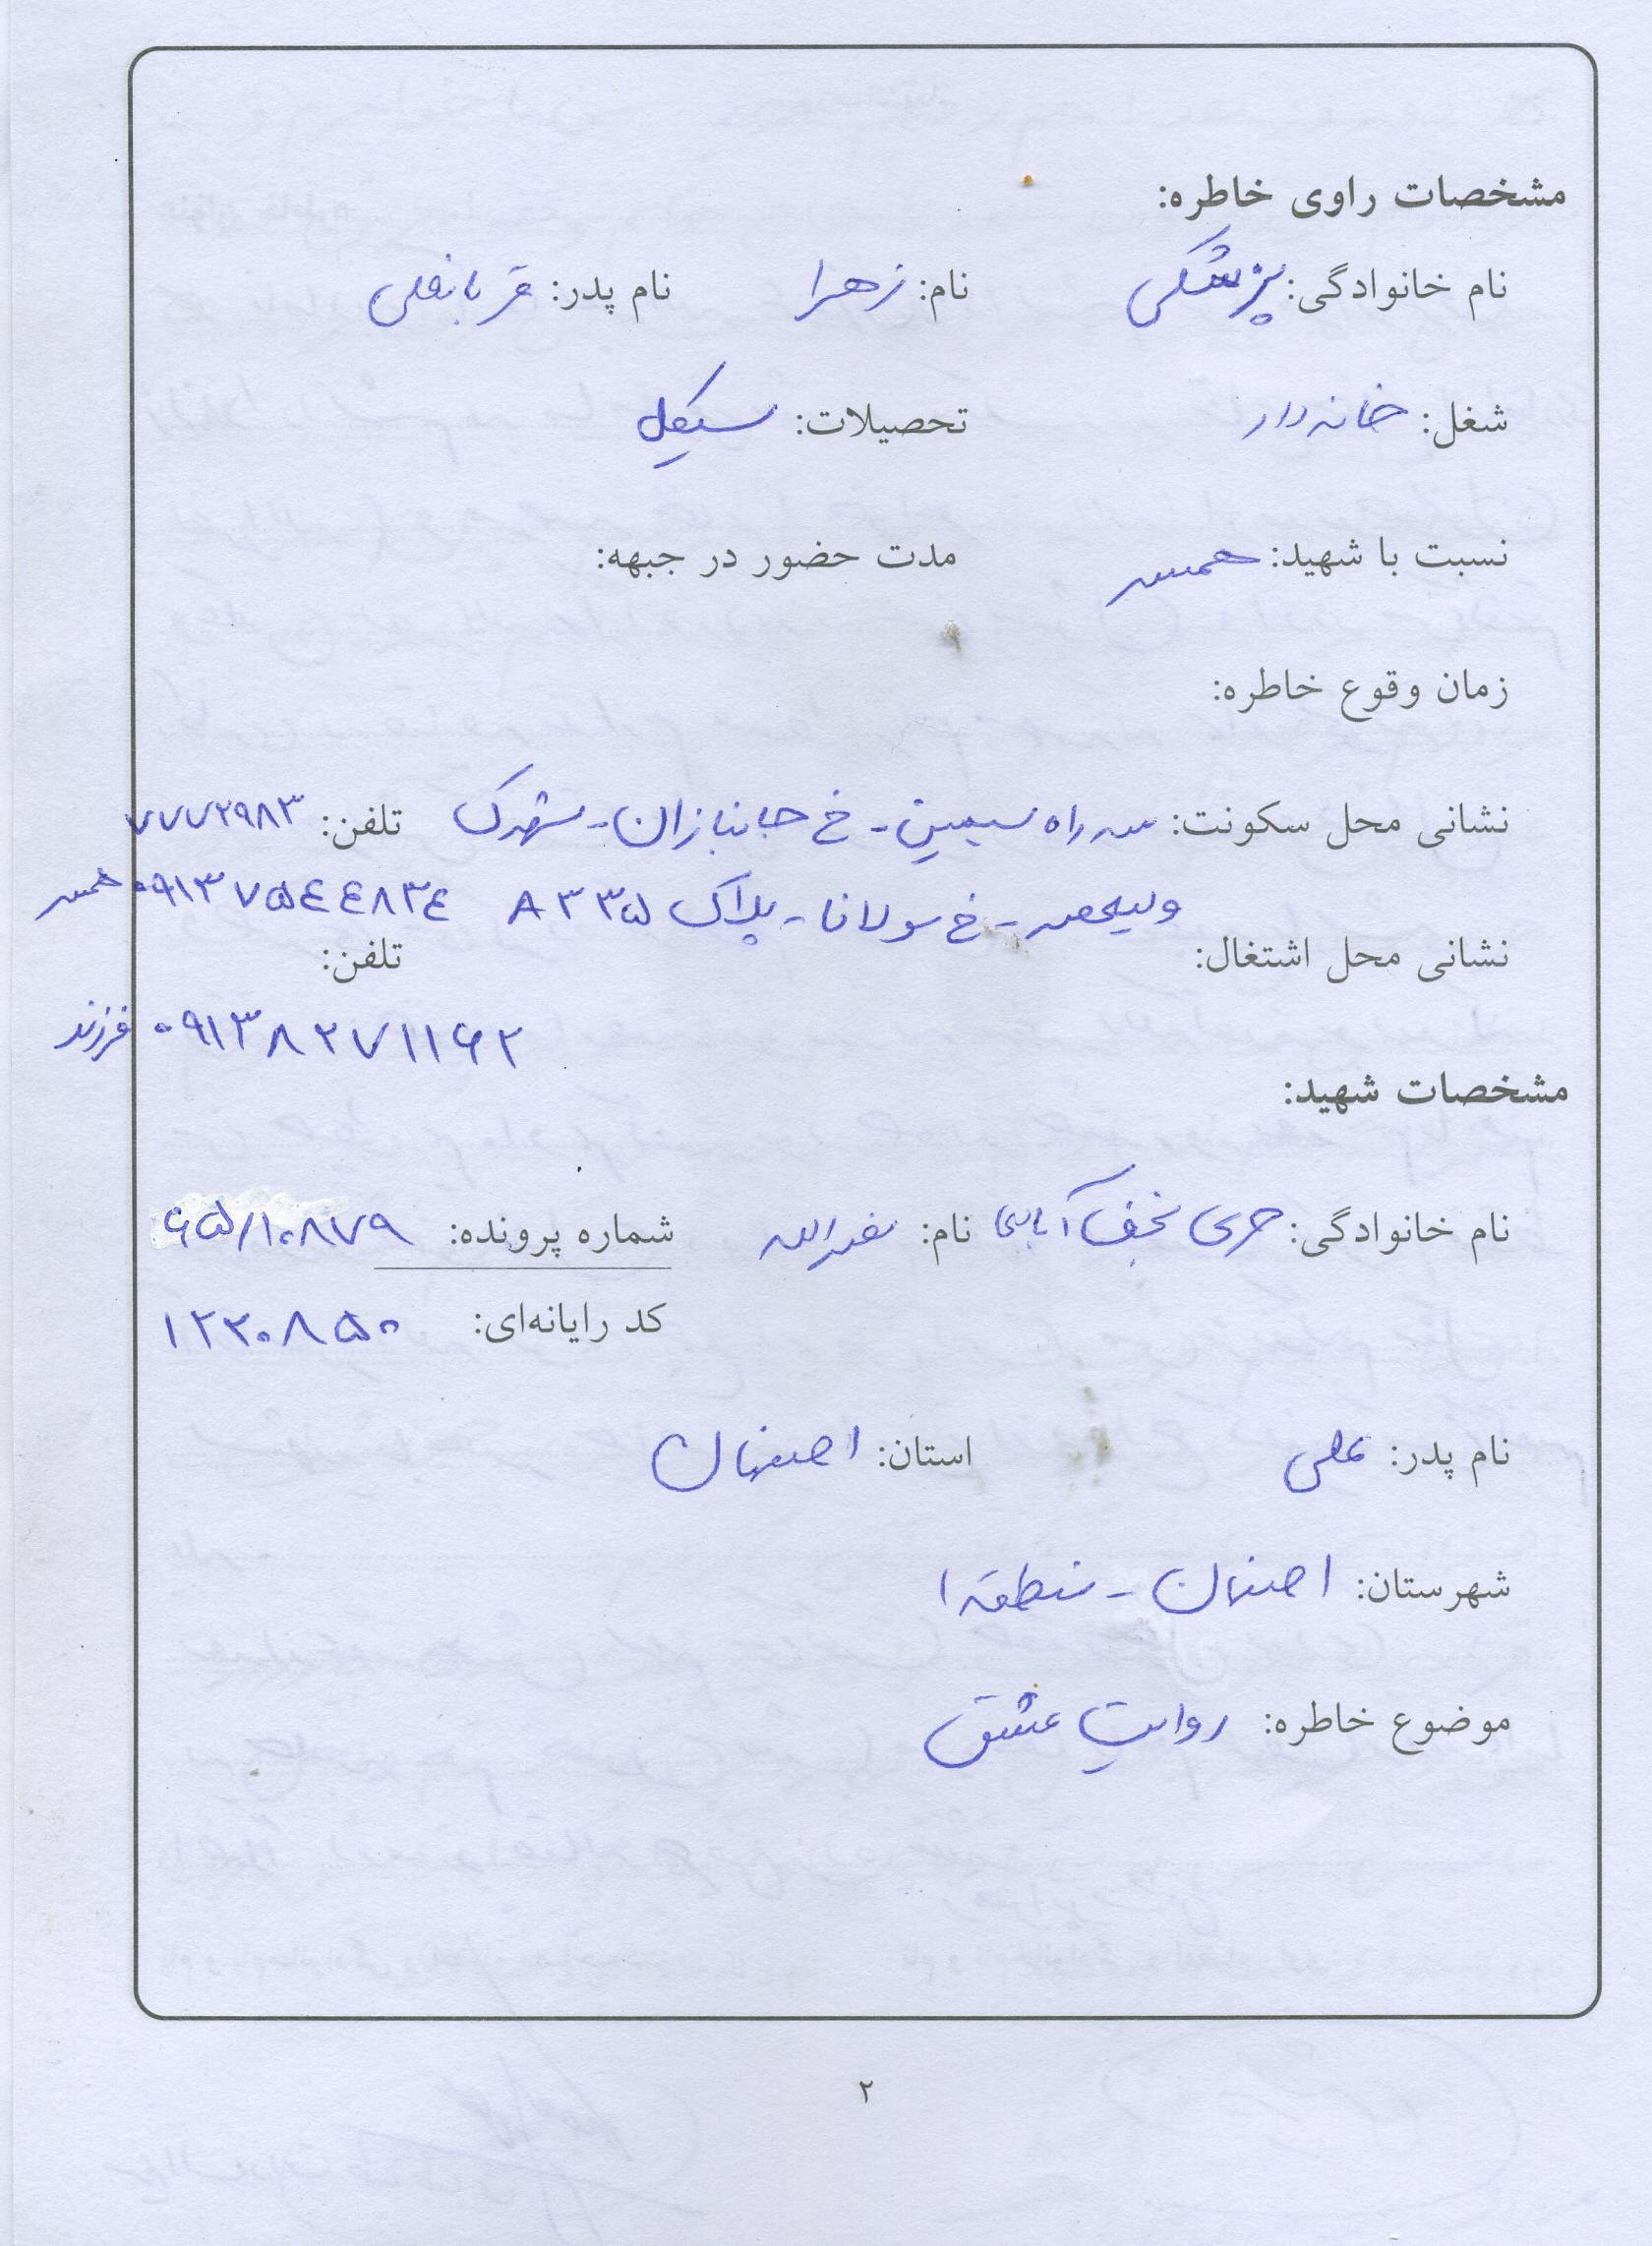 مشخصات راوی خاطره:
نام خانوادگی: پزشکی نام: زهرا نام پدر: قربانعلی
شغل: خانه دار تحصیلات: سیکل
نسبت با شهید: همسر مدت حضور در جبهه:
زمان وقوع خاطره:
نشانی محل سکونت: سه راه سیمین - خ جانبازان - شهرک تلفن: ۷۷۷۲۹۸۳
ولیعصر - خ مولانا - پلاک ۳۳۵ ۸ ۰۹۱۳۷۵۴۴۸۳۴ همسر
نشانی محل اشتغال: تلفن:
۰۹۱۳۸۲۷۱۱۶۲ فرزند
مشخصات شهید:
نام خانوادگی: حری نجف آبادی نام: نصراله شماره پرونده: ۶۵/۱۰۸۷۹
کد رایانه‌ای: ۱۲۲۰۸۵۰
نام پدر: علی استان: اصفهان
شهرستان: اصفهان - منطقه ۱
موضوع خاطره: روایت عشق
۲